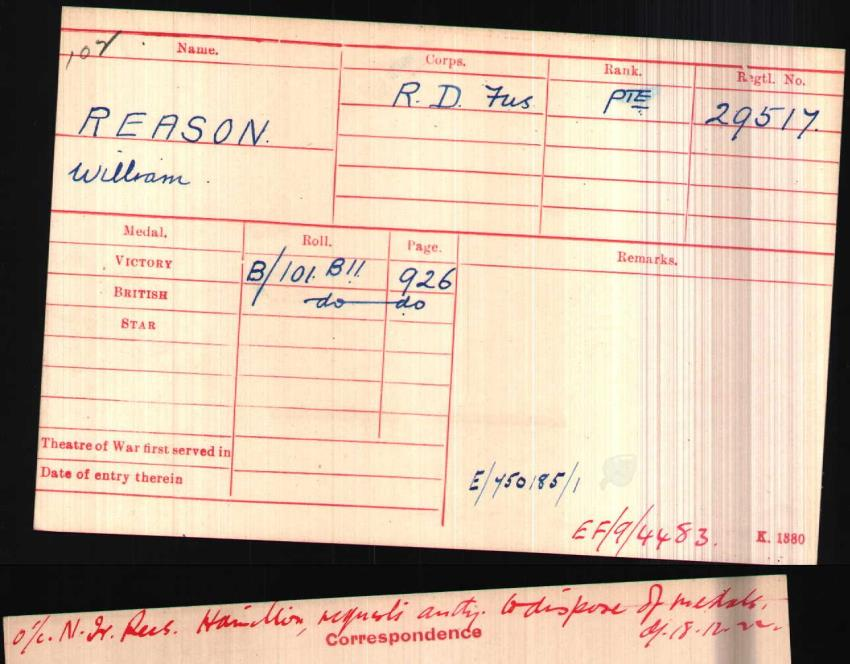 107
Name. Corps. Rank. Regtl. No.
R. D. Fus PTE 29517.
REASON.
William
Medal. Roll. Page. Remarks.
VICTORY B/101. B11 926
BRITISH do do
STAR
Theatre of War first served in
Date of entry therein
E/450185/1
EF/9/4483. K. 1380
o/c. N. Ir. Recs. Hamilton, requests authy. to dispose of medals.
Correspondence
18.12.22.